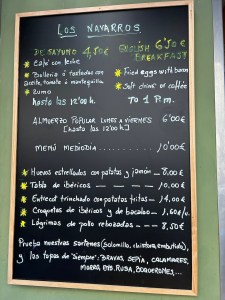 LOS NAVARROS
DESAYUNO 4,50€ ENGLISH 6'50€
BREAKFAST
* Café con leche
* Bulleria ó tostadas con
aceite, tomate ó mantequilla
* Zumo
hasta las 12'00h.
* Fried eggs with bacon
* Soft drink or coffee
TO 1 P.m.
ALMUERZO POPULAR LUNES A VIERNES 6'00€
[hasta las 12'00h]
MENÚ MEDIODIA 10,00€
* Huevos estrellados con patatas y jamón 8,00€
* Tabla de ibéricos 10,00€
* Entrecot trinchado con patatas fritas 14,00€
* Croquetas de ibéricos y de bacalao 1,60€/u.
* Lágrimas de pollo rebozadas 8,50€
Prueba nuestras sartenes (solomillo, chistorra, embutido),
y las tapas de "siempre": BRAVAS, SEPIA, CALAMARES,
MORRO, RUSA, BOQUERONES...